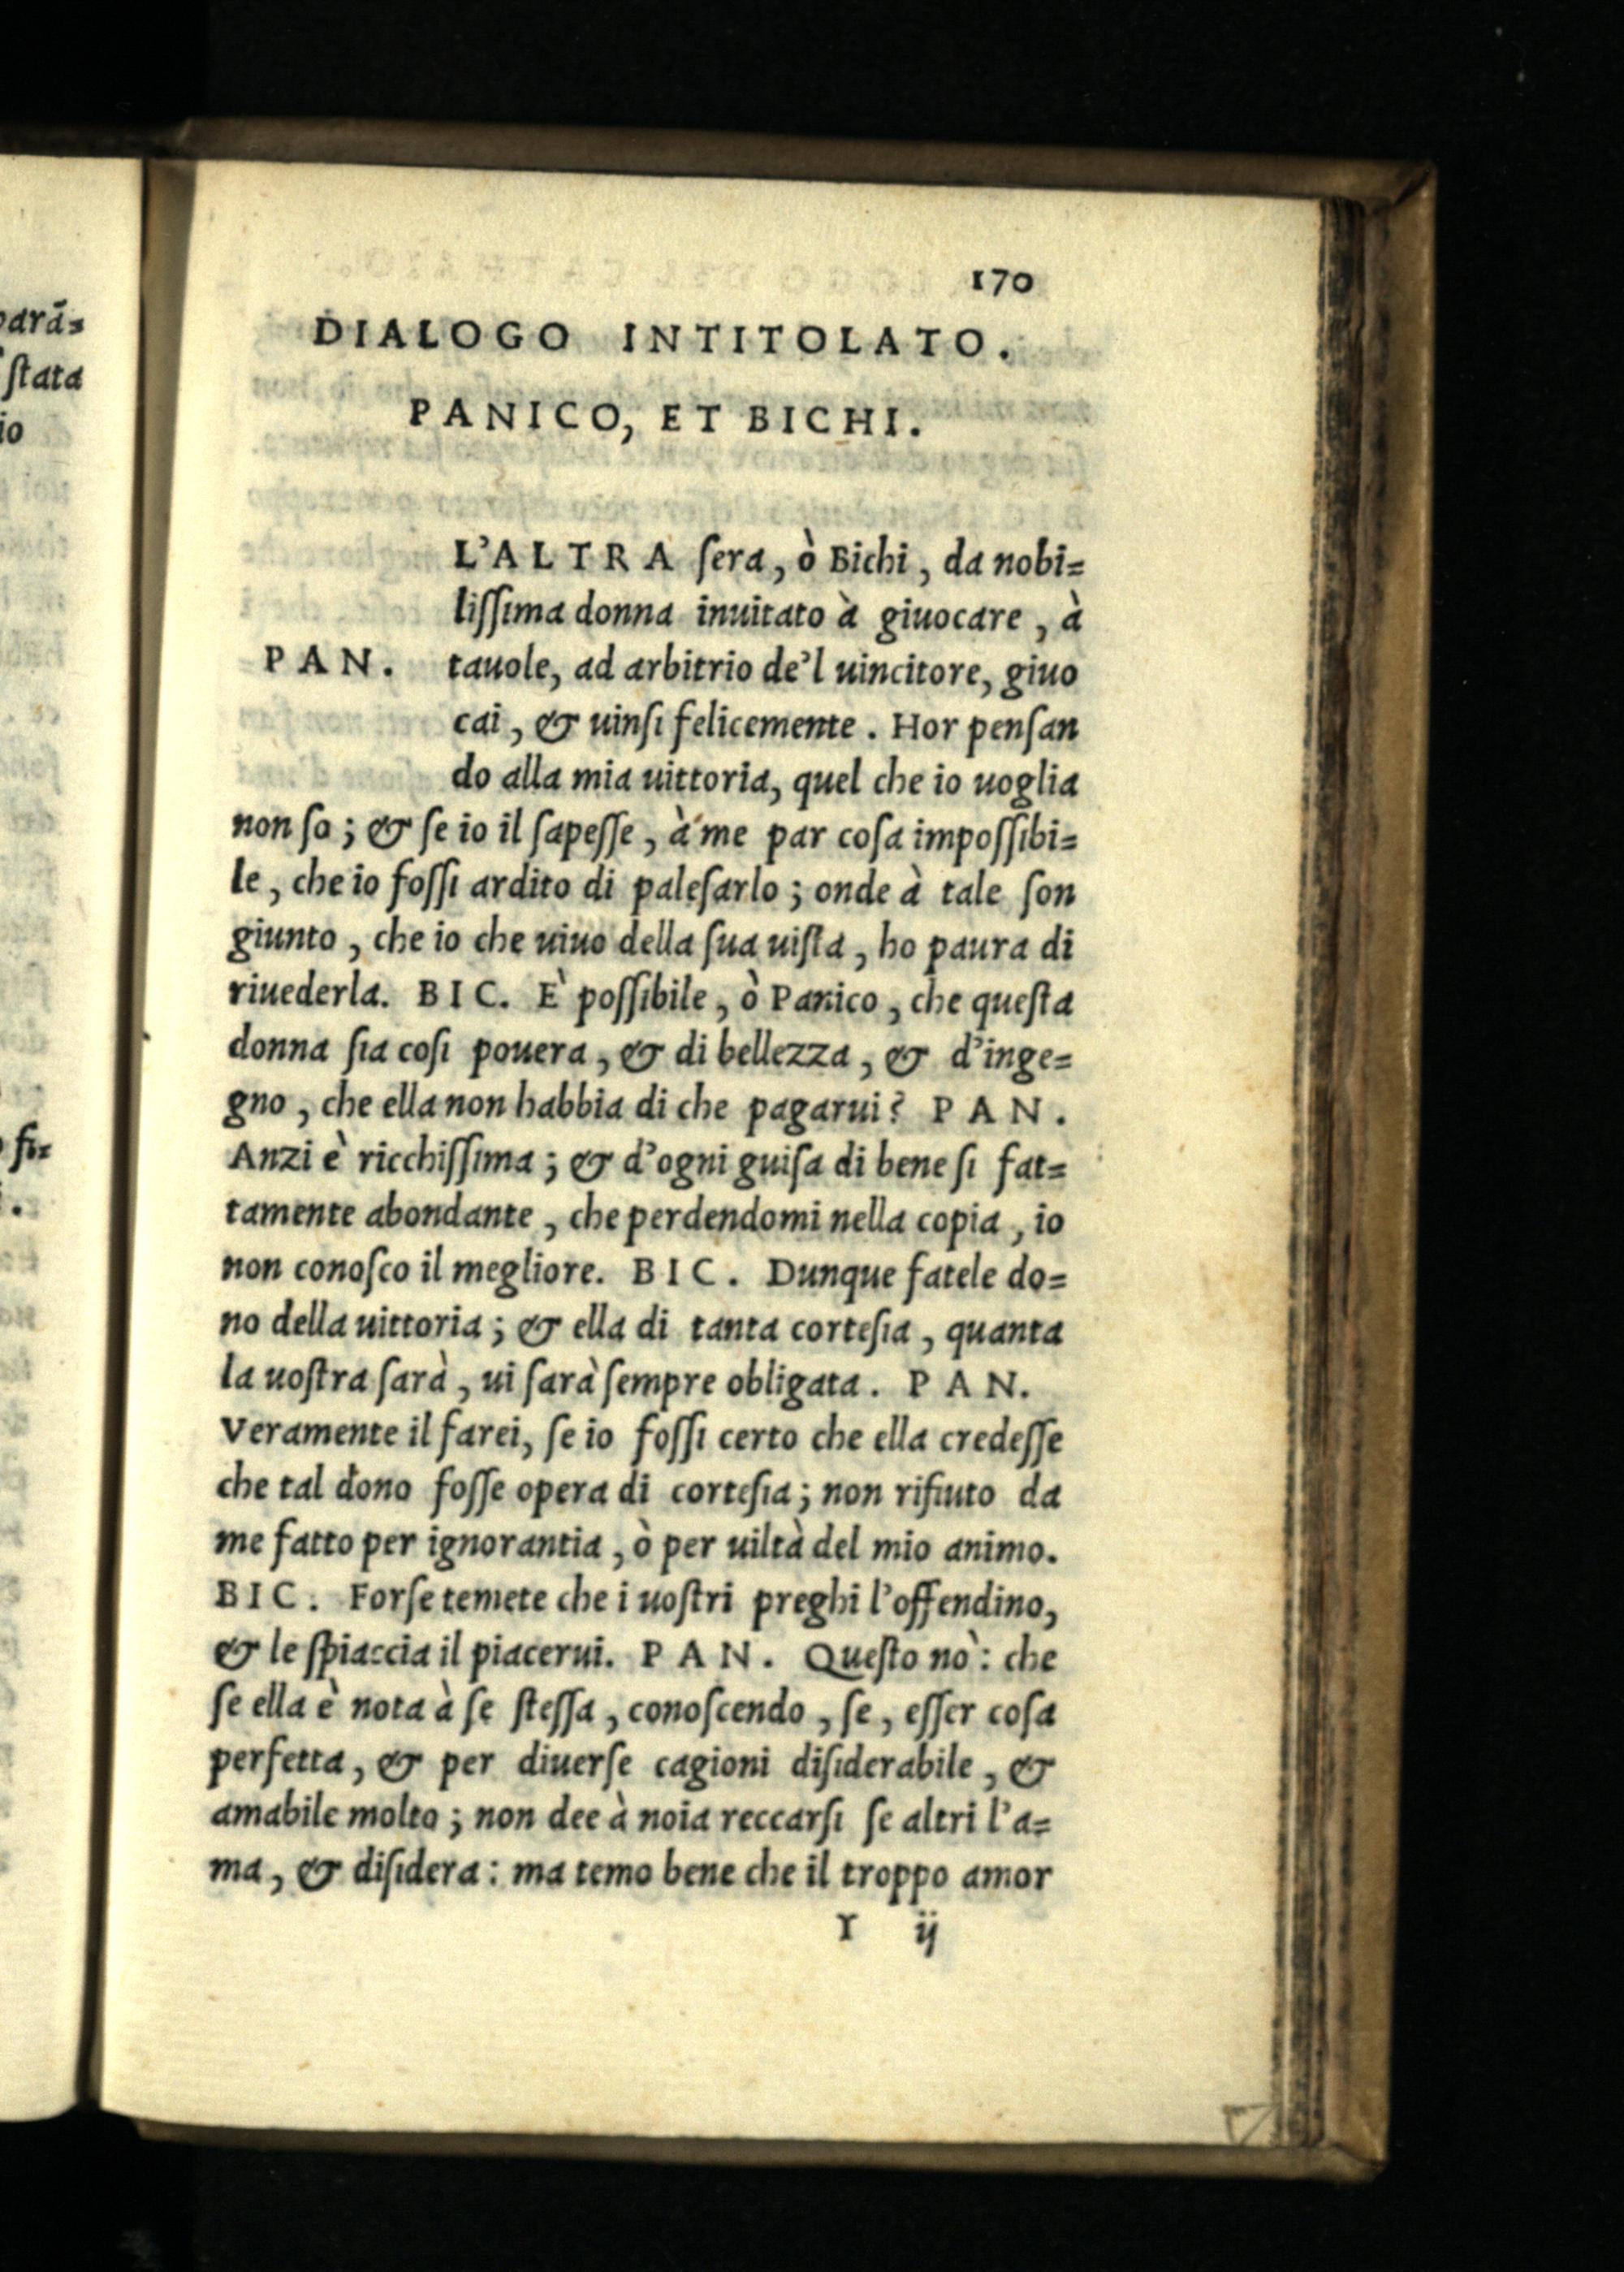 parā-
stata
io
fi-
170
DIALOGO INTITOLATO.
PANICO, ET BICHI.
L'ALTRA ſera, ò Bichi, da nobi-
liſſima donna inuitato à giuocare, à
PAN. tauole, ad arbitrio de'l uincitore, giuo
cai, & uinſi felicemente. Hor penſan
do alla mia uittoria, quel che io uoglia
non ſo; & ſe io il ſapeſſe, à me par coſa impoſſibi-
le, che io foſſi ardito di paleſarlo; onde à tale ſon
giunto, che io che uiuo della ſua uiſta, ho paura di
riuederla. BIC. È poſſibile, ò Panico, che queſta
donna ſia coſi pouera, & di bellezza, & d'inge-
gno, che ella non habbia di che pagarui? PAN.
Anzi è ricchiſſima; & d'ogni guiſa di bene ſi fat-
tamente abondante, che perdendomi nella copia, io
non conoſco il megliore. BIC. Dunque fatele do-
no della uittoria; & ella di tanta corteſia, quanta
la uoſtra ſarà, ui ſarà ſempre obligata. PAN.
Veramente il farei, ſe io foſſi certo che ella credeſſe
che tal dono foſſe opera di corteſia; non rifiuto da
me fatto per ignorantia, ò per uiltà del mio animo.
BIC. Forſe temete che i uoſtri preghi l'offendino,
& le ſpiaccia il piacerui. PAN. Queſto nò: che
ſe ella è nota à ſe ſteſſa, conoſcendo, ſe, eſſer coſa
perfetta, & per diuerſe cagioni diſiderabile, &
amabile molto; non dee à noia reccarſi ſe altri l'a-
ma, & diſidera: ma temo bene che il troppo amor
Y ij